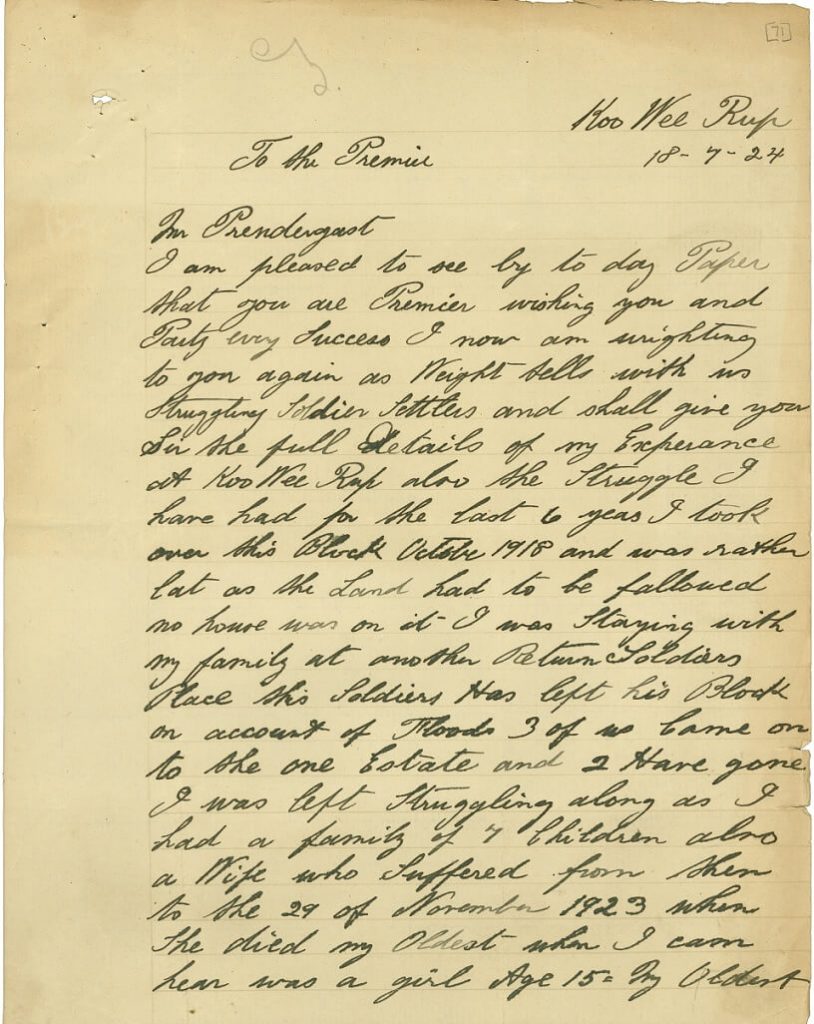 [71]
Koo Wee Rup
18-7-24
To the Premier
Mr Prendergast
I am pleased to see by to day Paper
that you are Premier wishing you and
Party every Success I now am wrighting
to you again as Weight tells with us
Struggling Soldier Settlers and shall give you
Sir the full Details of my Experance
at Koo Wee Rup also the Struggle I
have had for the last 6 years I took
over this Block Octobe 1918 and was rather
lat as the Land had to be fallowed
no house was on it I was Staying with
my family at another Return Soldiers
Place this Soldiers Has left his Block
on account of Floods 3 of us Came on
to the one Estate and 2 Have gone
I was left Struggling along as I
had a family of 7 Children also
a Wife who Suffered from then
to the 29 of November 1923 when
She died my Oldest when I cam
hear was a girl Age 15= My Oldest